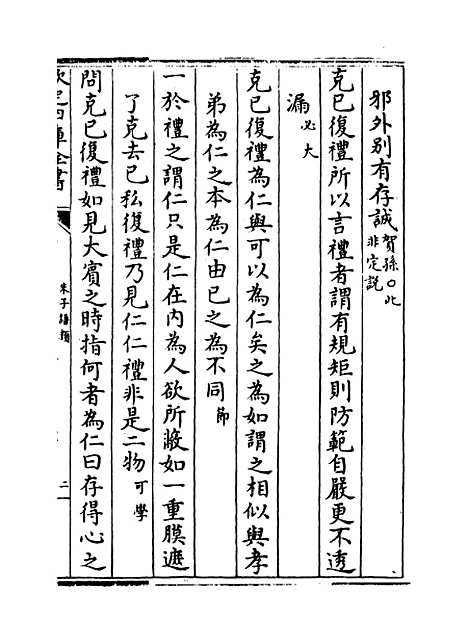 邪外别有存誠賀孫○此非定説
克已復禮所以言禮者謂有規矩則防範自嚴更不透
漏必大
克已復禮為仁與可以為仁矣之為如謂之相似與孝
弟為仁之本為仁由已之為不同節
一於禮之謂仁只是仁在内為人欲所蔽如一重膜遮
了克去已私復禮乃見仁仁禮非是二物可學
問克已復禮如見大賓之時指何者為仁曰存得心之
欽定四庫全書
朱子語類